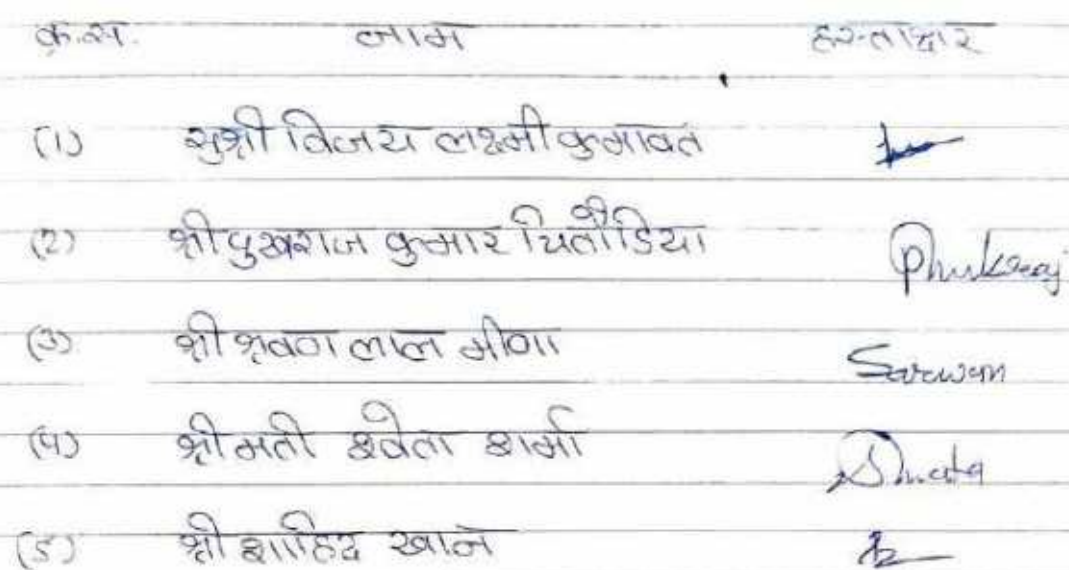 क्र.स. नाम हस्ताक्षर
(1) सुश्री विजय लक्ष्मी कुमावत
(2) श्री पुखराज कुमार चितौडिया Phukraj
(3) श्री श्रवण लाल मीणा Sarwan
(4) श्रीमती श्वेता शर्मा Shweta
(5) श्री शाहिद खान